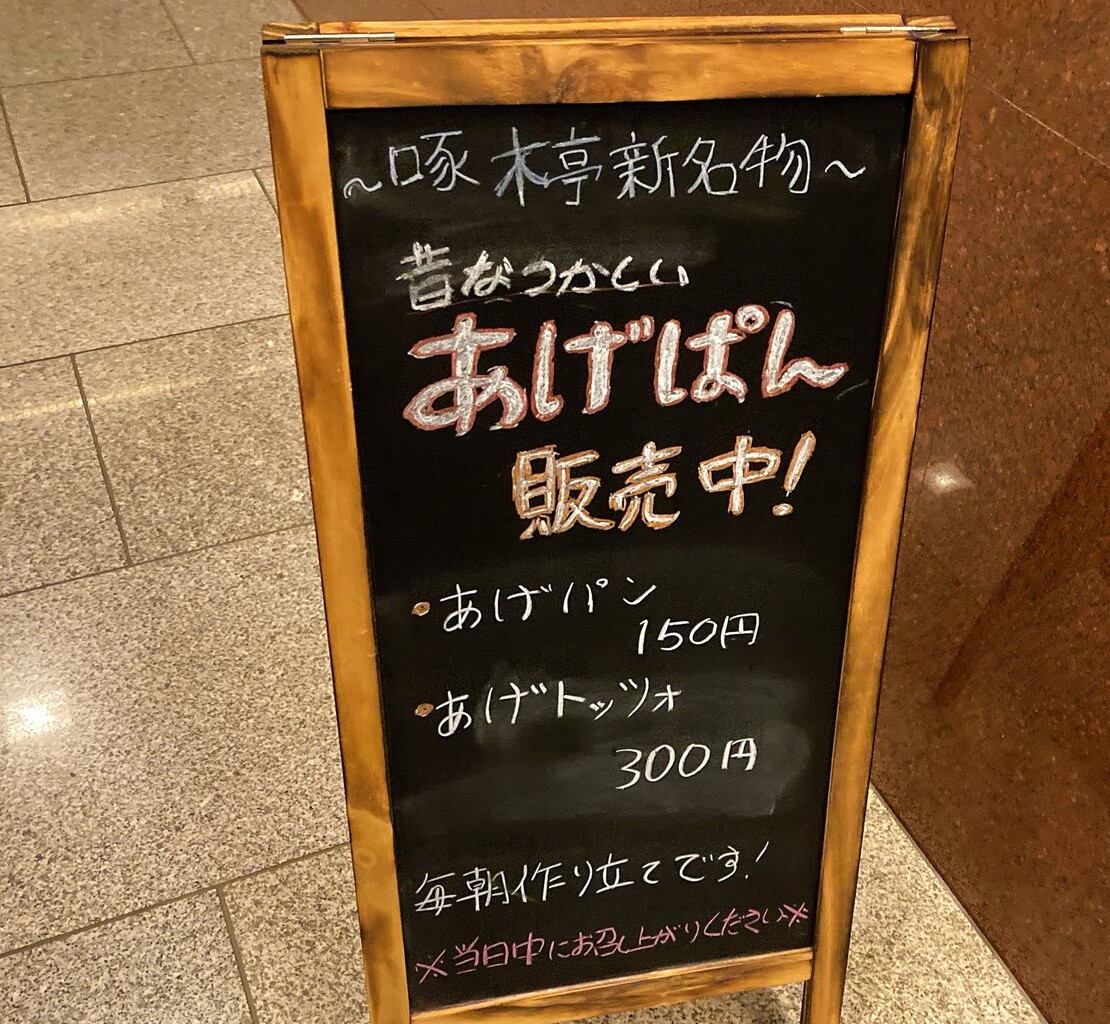 ～啄木亭新名物～
昔なつかしい
あげぱん
販売中!
・あげパン
150円
・あげトッツォ
300円
毎朝作り立てです!
※当日中にお召し上がりください※